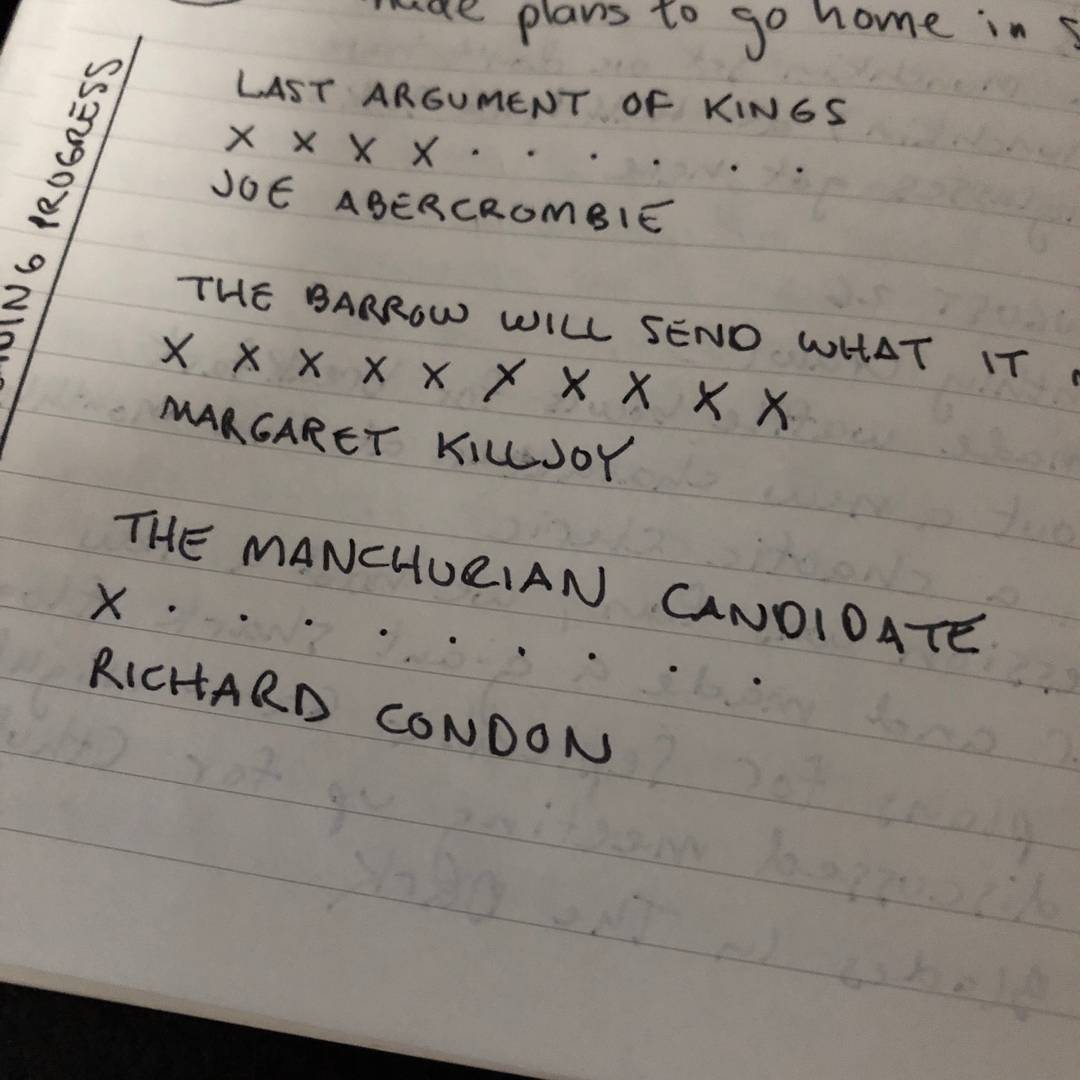 made plans to go home in
PROGRESS
LAST ARGUMENT OF KINGS
X X X X . . . . . .
JOE ABERCROMBIE
THE BARROW WILL SEND WHAT IT
X X X X X X X X X X
MARGARET KILLJOY
THE MANCHURIAN CANDIDATE
X . . . . . . . . .
RICHARD CONDON